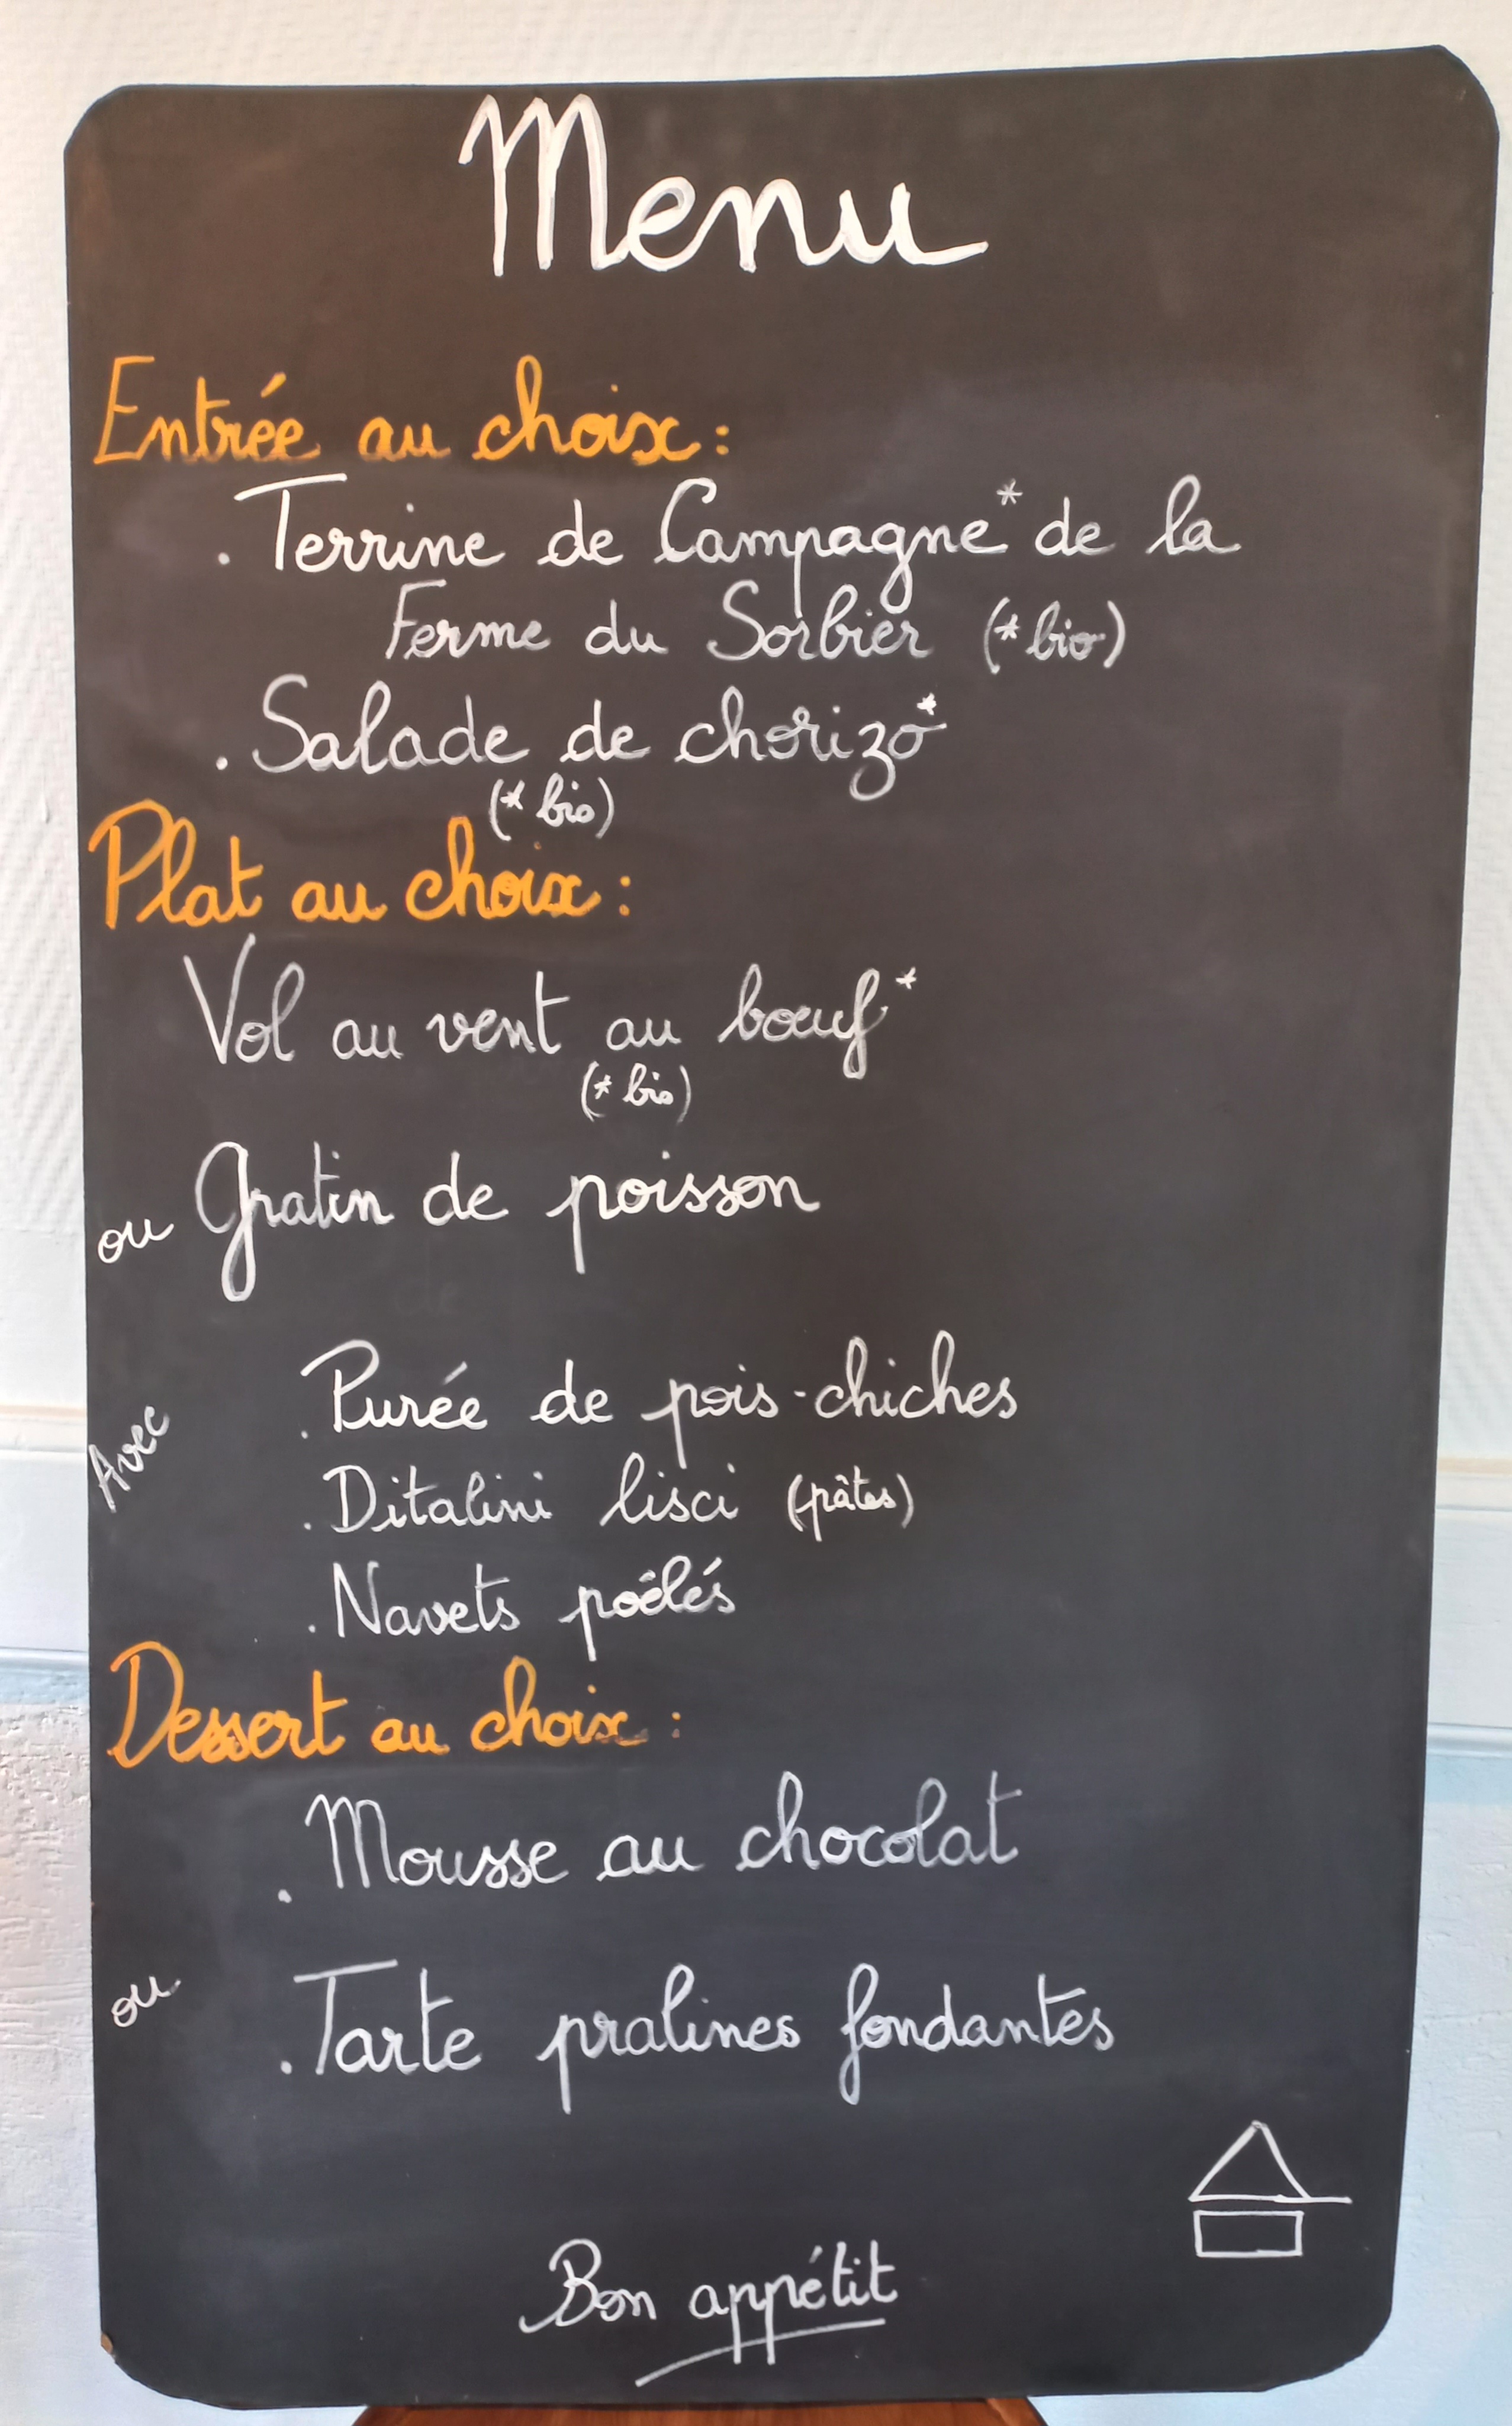 Menu
Entrée au choix :
. Terrine de Campagne* de la
Ferme du Sorbier (* bio)
. Salade de chorizo*
(* bio)
Plat au choix :
Vol au vent au bœuf*
(* bio)
ou Gratin de poisson
Avec
. Purée de pois-chiches
. Ditalini lisci (pâtes)
. Navets poêlés
Dessert au choix :
. Mousse au chocolat
ou
. Tarte pralines fondantes
Bon appétit